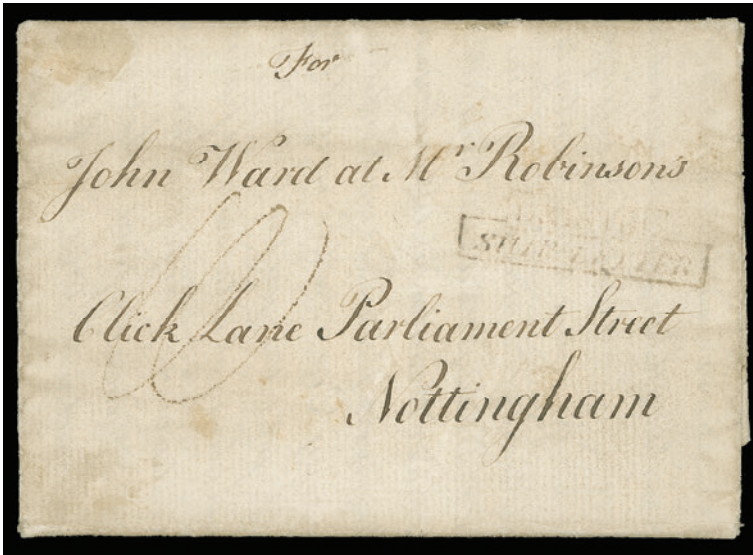 For
John Ward at Mr Robinson's
SHIP LETTER
Click Lane Parliament Street
Nottingham